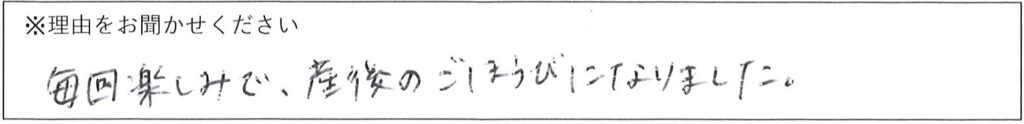 ※理由をお聞かせください
毎回楽しみで、産後のごほうびになりました。